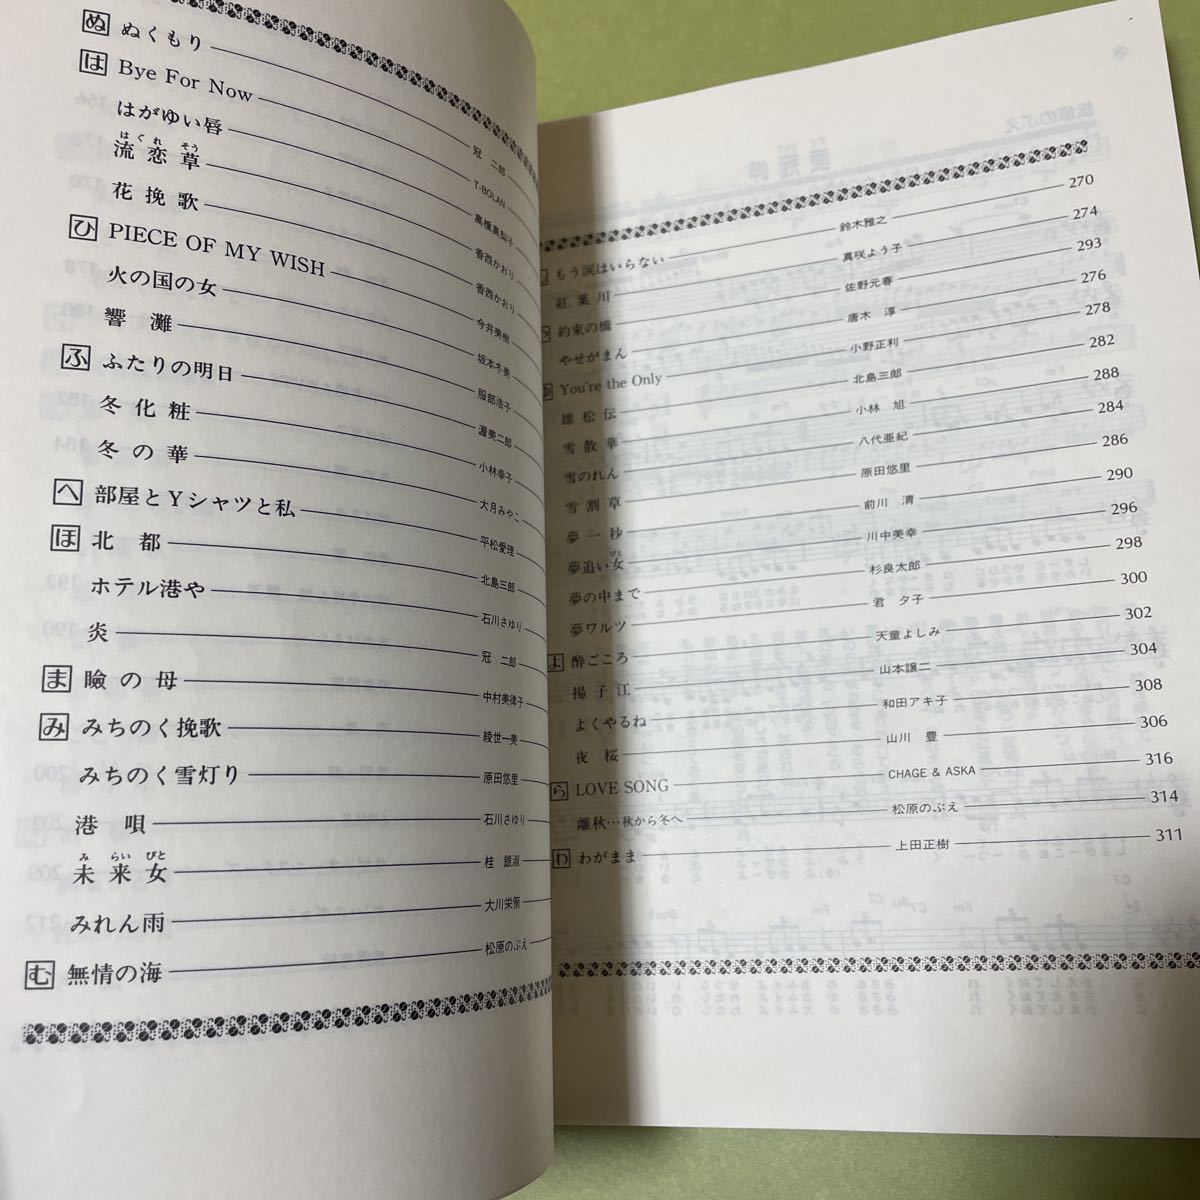 ぬ ぬくもり 冠 二郎
は Bye For Now T-BOLAN
はがゆい唇 高橋真梨子
はぐれ そう
流 恋 草 香西かおり
花 挽 歌 香西かおり
ひ PIECE OF MY WISH 今井美樹
火の国の女 坂本冬美
響 灘 服部浩子
ふ ふたりの明日 渥美二郎
冬 化 粧 小林幸子
冬 の 華 大月みやこ
へ 部屋とYシャツと私 平松愛理
ほ 北 都 北島三郎
ホテル港や 石川さゆり
炎 冠 二郎
ま 瞼 の 母 中村美律子
み みちのく挽歌 綾世一美
みちのく雪灯り 原田悠里
港 唄 石川さゆり
み らい びと
未 来 女 桂 銀淑
みれん雨 大川栄策
む 無情の海 松原のぶえ
もう涙はいらない 鈴木雅之 270
紅 葉 川 真咲よう子 274
約束の橋 佐野元春 293
やせがまん 唐木 淳 276
You're the Only 小野正利 278
雄 松 伝 北島三郎 282
雪 散 華 小林 旭 288
雪のれん 八代亜紀 284
雪 割 草 原田悠里 286
夢 一 秒 前川 清 290
びと
夢追い女 川中美幸 296
夢の中まで 杉良太郎 298
夢ワルツ 君 夕子 300
よ 酔ごころ 天童よしみ 302
揚 子 江 山本譲二 304
よくやるね 和田アキ子 308
夜 桜 山川 豊 306
ら LOVE SONG CHAGE & ASKA 316
離秋…秋から冬へ 松原のぶえ 314
わ わがまま 上田正樹 311